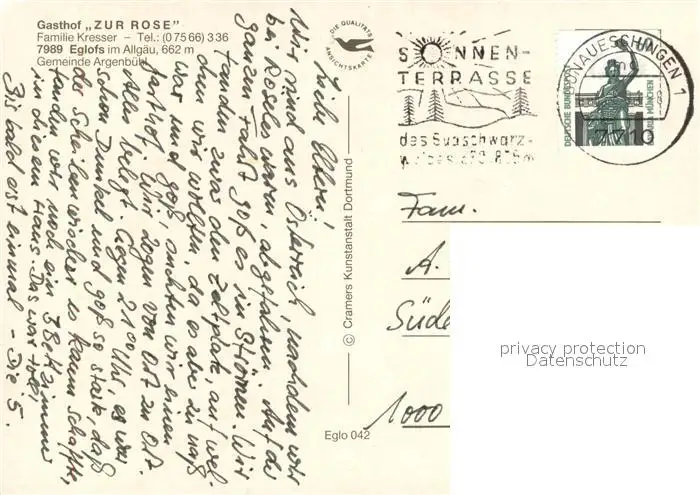 Gasthof „ZUR ROSE"
Familie Kresser – Tel.: (0 75 66) 3 36
7989 Eglofs im Allgäu, 662 m
Gemeinde Argenbühl
DIE QUALITÄTS
ANSICHTSKARTE
SONNEN-
TERRASSE
des Südschwarz-
waldes
DONAUESCHINGEN 1
7710
DEUTSCHE BUNDESPOST
BAVARIA MÜNCHEN
Liebe Eltern,
wir sind aus Österreich, nachdem wir
bei Roses waren, abgefahren. Auf der
ganzen Fahrt goß es in Strömen. Wir
fanden zwar den Zeltplatz, auf wel-
chen wir wollten, da es aber zu naß
war und goß, suchten wir einen
Gasthof. Wir zogen von Ort zu Ort
Alle belegt. Gegen 21 00 Uhr, es war
schon dunkel und goß so stark, daß
der Scheibenwischer es kaum schaffte,
fanden wir noch ein 3 Bettzimmer
in diesem Haus. Das war toll,
Bis bald erst einmal – Die 5.
© Cramers Kunstanstalt Dortmund
Eglo 042
Fam.
A.
Süde
1000
privacy protection
Datenschutz